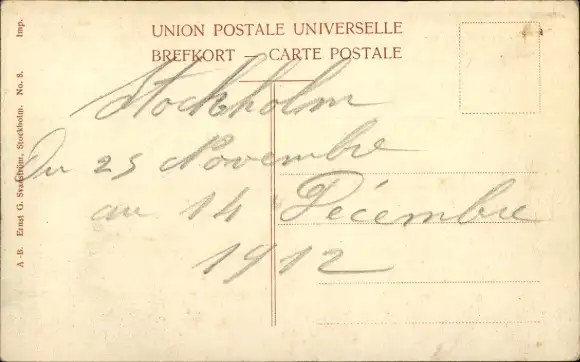 UNION POSTALE UNIVERSELLE
BREFKORT — CARTE POSTALE
Stockholm
Du 25 Novembre
au 14 Décembre
1912
A.-B. Ernst G. Svanström, Stockholm. No. 8. Imp.